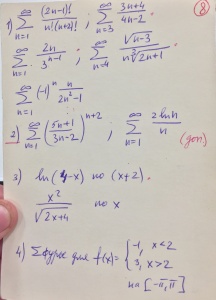 ⑧
1) ∞∑n=1 (2n-1)!/n!(n+2)! ; ∞∑n=3 (3n+4)/(4n-2)
∞∑n=1 2n/3^(n-1) ; ∞∑n=4 √(n-3)/(n ∛(2n+1))
∞∑n=1 (-1)^n n/(2n²-1)
2) ∞∑n=1 ((5n+1)/(3n-2))^(n+2) ; ∞∑n=1 2 ln n/n
(доп)
3) ln(4-x) по (x+2).
x²/√(2x+4) по x
4) Σ Фурье для f(x)= { -1, x<2
3, x>2
на [-π, π]